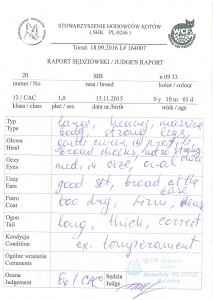 STOWARZYSZENIE HODOWCÓW KOTÓW
( SHK PL-0246 )
Toruń 18.09.2016 L# 164007
WCF
RAPORT SĘDZIOWSKI / JUDGE'S RAPORT
20 SIB n 09 33
numer / No rasa / breed kolor / colour
13 / CAC 1,0 15.11.2015 0 y 10 m 03 d
klasa / class płeć / sex data ur./birth wiek / age
Typ
Type
large, heavy, massive
body, strong legs,
Głowa
Head
gentle curve in profile,
broad cheeks,
Oczy
Eyes
med. in size, oval
Uszy
Ears
good set, broad at the
Futro
Coat
too dry,
Ogon
Tail
long, thick, correct
Kondycja
Condition
ex. temperament
Ogólne wrażenie
Comments
Ocena
Judgement
Ex / CAC
Sędzia
Judge